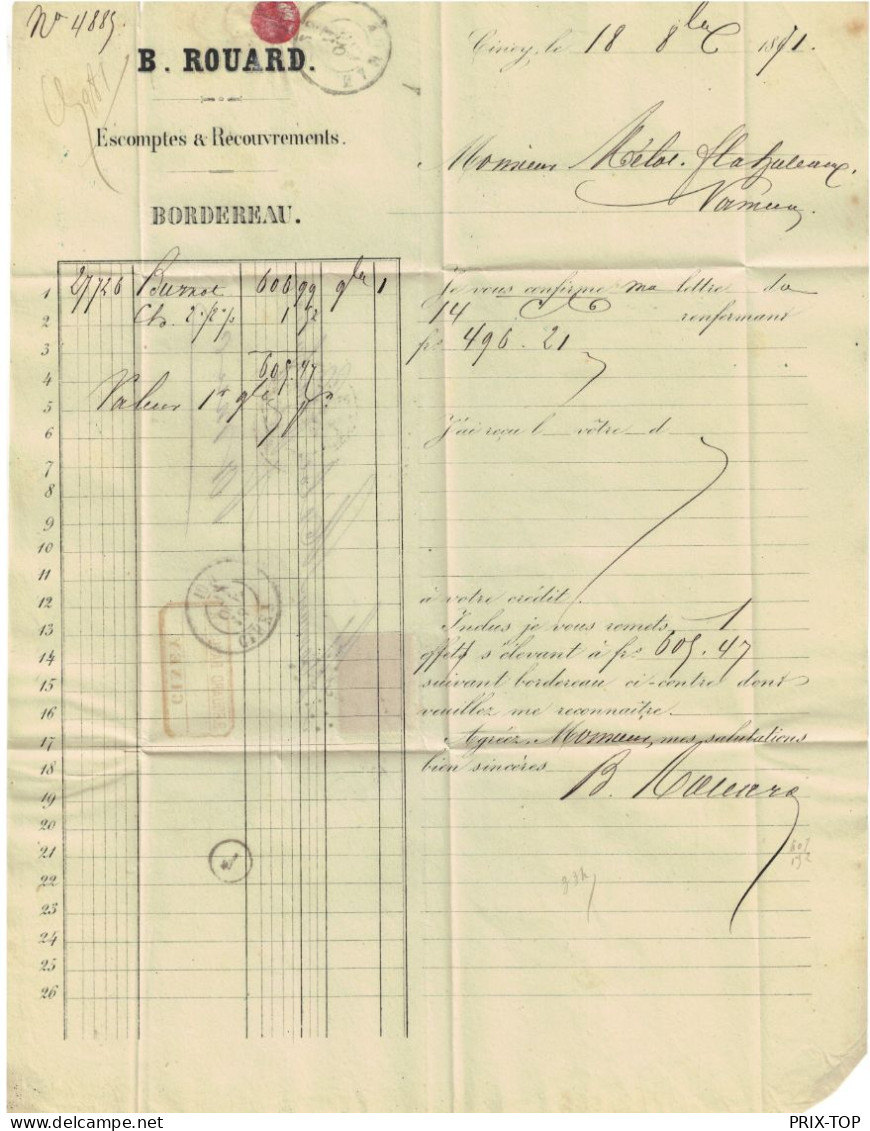 No 4885
B. ROUARD.
Escomptes & Recouvrements.
BORDEREAU.
Ciney, le 18 8bre 1871.
Monsieur Mélot
Namur
1 27726 606 99 9bre 1
2 1 52
3
4 605.47
5 Valeur 1r 9bre
6
7
8
9
10
11
12
13
14
15
16
17
18
19
20
21
22
23
24
25
26
Je vous confirme ma lettre du
14 renfermant
frs 496.21
J'ai reçu l votre d
à votre crédit.
Inclus je vous remets 1
effets s'élevant à frs 605.47
suivant bordereau ci-contre dont
veuillez me reconnaître.
Agréez, Monsieur, mes salutations
bien sincères
B. Rouard
CINEY
CINEY
PRIX-TOP